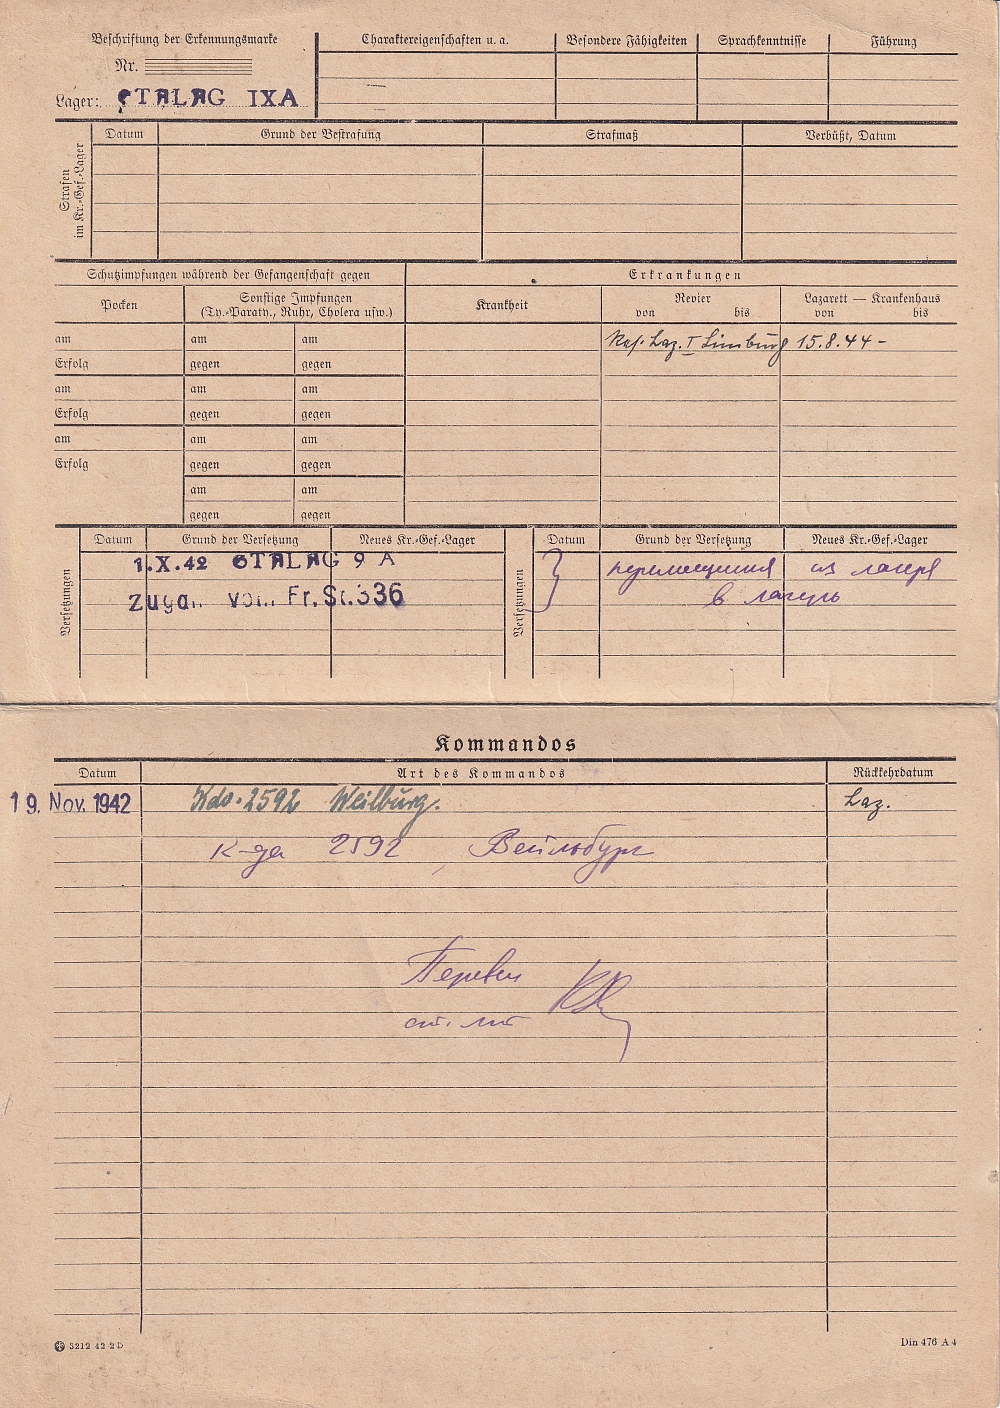 Beschriftung der Erkennungsmarke
Nr.
Lager: STALAG IXA
Charaktereigenschaften u. a.
Besondere Fähigkeiten
Sprachkenntnisse
Führung
Strafen im Kr.-Gef.-Lager
Datum
Grund der Bestrafung
Strafmaß
Verbüßt, Datum
Schutzimpfungen während der Gefangenschaft gegen
Erkrankungen
Pocken
Sonstige Impfungen
(Ty.-Paraty., Ruhr, Cholera usw.)
Krankheit
Revier
von bis
Lazarett — Krankenhaus
von bis
am am am
Res. Laz. I Limburg 15.8.44 -
Erfolg gegen gegen
am am am
Erfolg gegen gegen
am am am
Erfolg gegen gegen
am am
gegen gegen
Versetzungen
Datum
Grund der Versetzung
Neues Kr.-Gef.-Lager
1.X.42 STALAG 9 A
Zugan. vom Fr.St.336
Versetzungen
Datum
Grund der Versetzung
Neues Kr.-Gef.-Lager
перемещения из лагеря
в лагерь
Kommandos
Datum
Art des Kommandos
Rückkehrdatum
19. Nov. 1942 Kdo. 2592 Weilburg. Laz.
К-да 2592, Вейльбург
Перевел
ст. л-т
5212 42 2 D
Din 476 A 4